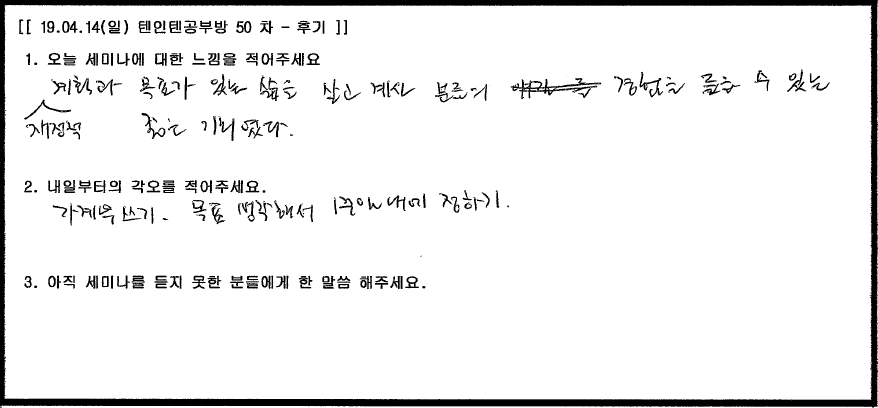 [[ 19.04.14(일) 텐인텐공부방 50 차 - 후기 ]]
1. 오늘 세미나에 대한 느낌을 적어주세요
계획과 목표가 있는 삶을 살고 계신 분들의 경험을 들을 수 있는
재정적 좋은 기회였다.
2. 내일부터의 각오를 적어주세요.
가계부 쓰기. 목표 생각해서 1주일내에 정하기.
3. 아직 세미나를 듣지 못한 분들에게 한 말씀 해주세요.